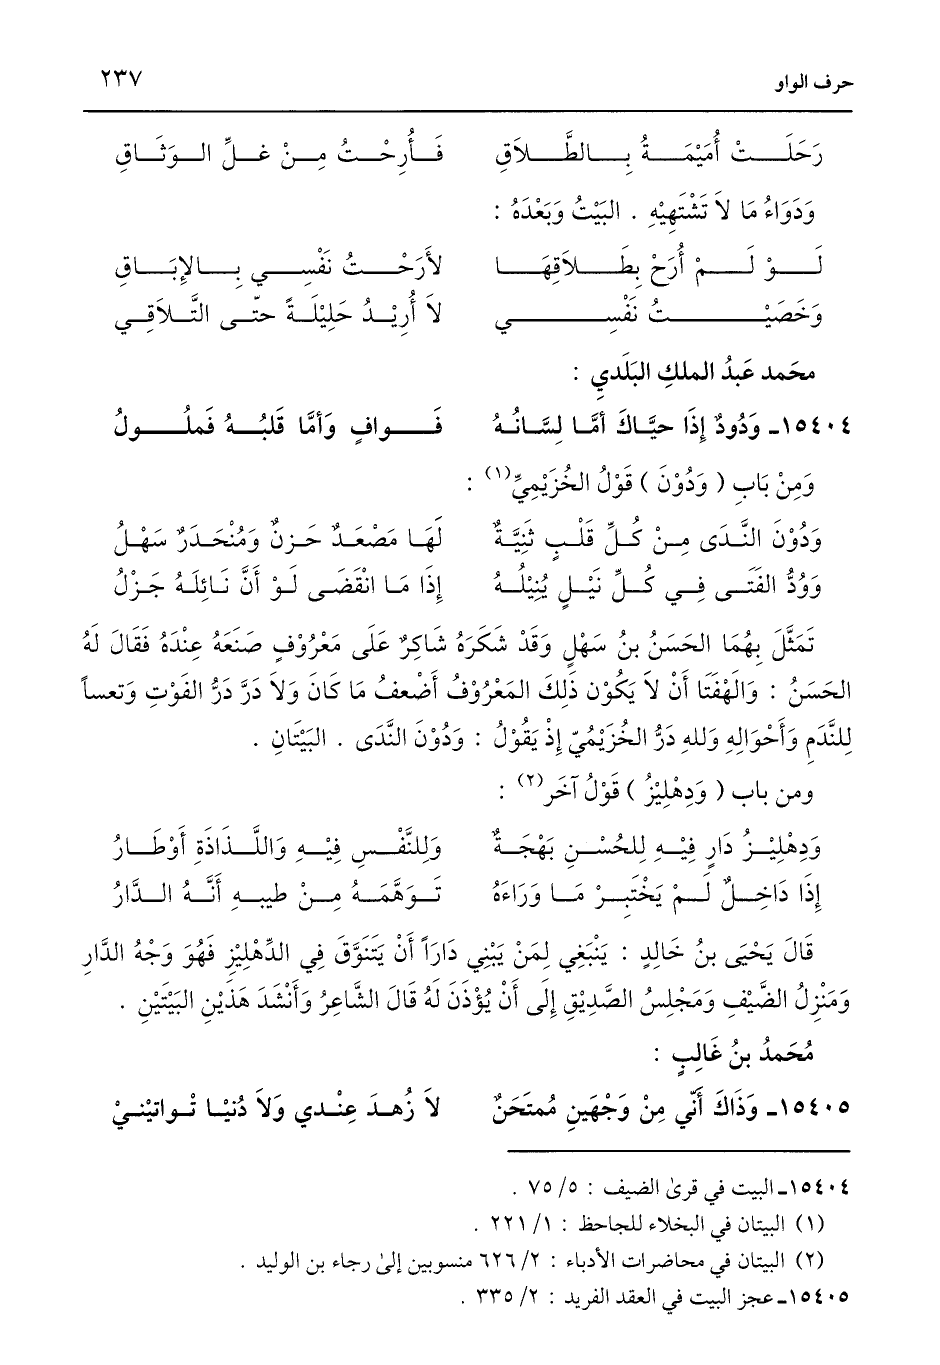 حرف الواو ٢٣٧
رَحَلَتْ أُمَيْمَةُ بِالطَّلاَقِ فَأُرِحْتُ مِنْ غلِّ الوَثَاقِ
وَدَوَاءُ مَا لاَ تَشْتَهِيْهِ . البَيْتُ وَبَعْدَهُ :
لَوْ لَمْ أُرَحْ بِطَلاَقِهَا لأَرَحْتُ نَفْسِي بِالإِبَاقِ
وَخَصَيْتُ نَفْسِي لاَ أُرِيْدُ حَلِيْلَةً حتّى التَّلاَقِي
محَمد عَبدُ الملكِ البَلَدي :
١٥٤٠٤ـ وَدُودٌ إِذَا حيَّاكَ أمَّا لِسَانُهُ فَوافٍ وَأمَّا قَلبُهُ فَملُولُ
وَمِنْ بَابِ ( وَدُوْنَ ) قَوْلُ الخُزَيْمِيِّ(١) :
وَدُوْنَ النَّدَى مِنْ كُلِّ قَلْبٍ ثَنِيَّةٌ لَهَا مَصْعَدٌ حَزنٌ وَمُنْحَدَرٌ سَهْلُ
وَوُدُّ الفَتَى فِي كُلِّ نَيْلٍ يُنِيْلُهُ إِذَا مَا انْقَضَى لَوْ أَنَّ نَائِلَهُ جَزْلُ
تَمَثَّلَ بِهُمَا الحَسَنُ بنُ سَهْلٍ وَقَدْ شَكَرَهُ شَاكِرٌ عَلَى مَعْرُوْفٍ صَنَعَهُ عِنْدَهُ فَقَالَ لَهُ
الحَسَنُ : وَالَهْفَتَا أَنْ لاَ يَكُوْن ذَلِكَ المَعْرُوْفُ أَضْعفُ مَا كَانَ وَلاَ دَرَّ دَرُّ الفَوْتِ وَتعساً
لِلنَّدَمِ وَأَحْوَالِهِ وَللهِ دَرُّ الخُزَيْمُيّ إِذْ يَقُوْلُ : وَدُوْنَ النَّدَى . البَيْتَانِ .
ومن باب ( وَدِهْلِيْزُ ) قَوْلُ آخَر(٢) :
وَدِهْلِيْزُ دَارٍ فِيْهِ لِلحُسْنِ بَهْجَةٌ وَلِلنَّفْسِ فِيْهِ وَاللَّذَاذَةِ أَوْطَارُ
إِذَا دَاخِلٌ لَمْ يَخْتَبِرْ مَا وَرَاءَهُ تَوَهَّمَهُ مِنْ طيبهِ أَنَّهُ الدَّارُ
قَالَ يَحْيَى بنُ خَالِدٍ : يَنْبَغِي لِمَنْ يَبْنِي دَارَاً أَنْ يَتَنَوَّقَ فِي الدِّهْلِيْزِ فَهُوَ وَجْهُ الدَّارِ
وَمَنْزِلُ الضَّيْفِ وَمَجْلِسُ الصَّدِيْقِ إِلَى أَنْ يُؤْذَنَ لَهُ قَالَ الشَّاعِرُ وَأَنْشَدَ هَذَيْنِ البَيْتَيْنِ .
مُحَمدُ بنُ غَالِبٍ :
١٥٤٠٥ـ وَذَاكَ أَنّي مِنْ وَجْهَينِ مُمتَحَنٌ لاَ زُهدَ عِنْدي وَلاَ دُنيْا تْواتيْنيْ
١٥٤٠٤ـ البيت في قرىٰ الضيف : ٥/ ٧٥ .
(١) البيتان في البخلاء للجاحظ : ١/ ٢٢١ .
(٢) البيتان في محاضرات الأدباء : ٢/ ٦٢٦ منسوبين إلىٰ رجاء بن الوليد .
١٥٤٠٥ـ عجز البيت في العقد الفريد : ٢/ ٣٣٥ .